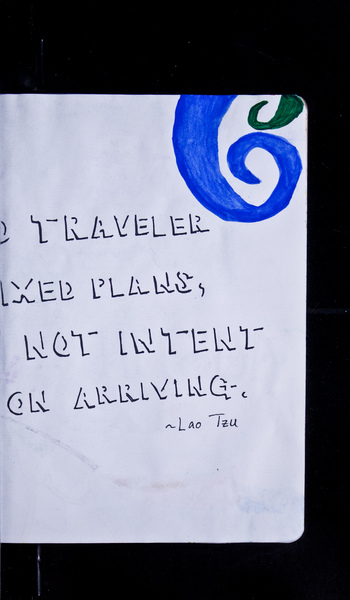 TRAVELER
IXED PLANS,
NOT INTENT
ON ARRIVING.
~Lao Tzu